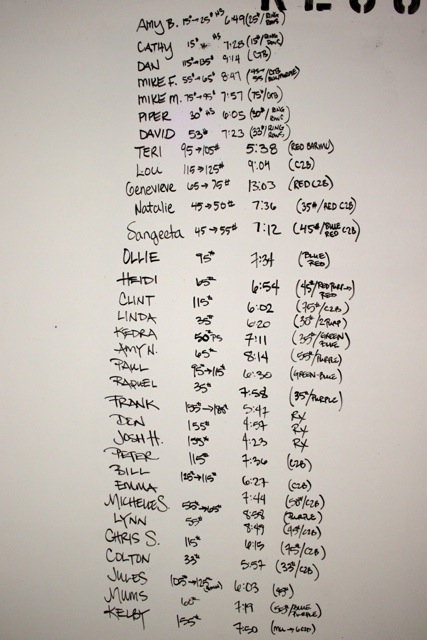 AMY B. 15#→25# HS 6:49 (25#/RING ROWS)
CATHY 15# HS 7:28 (15#/RING ROWS)
DAN 115#→135# 9:14 (CTB)
MIKE F. 55#→65# 8:47
MIKE M. 75#→95# 7:57 (75#/CTB)
PIPER 30# HS 6:05 (30#/RING ROWS)
DAVID 53# 7:23 (33#/RING ROWS)
TERI 95→105# 5:38
LOU 115→125# 9:04 (C2B)
Genevieve 65→75# 13:03 (RED C2B)
Natalie 45→50# 7:36 (35#/RED C2B)
Sangeeta 45→55# 7:12 (45#/BLUE RED C2B)
OLLIE 95# 7:34 (BLUE/RED)
HEIDI 65# 6:54
CLINT 115# 6:02 (75#/C2B)
LINDA 35# 6:20
KEDRA 50# PS 7:11 (25#/GREEN BLUE)
AMY N. 65# 8:14 (55#/PURPLE)
PAUL 95#→115# 6:30 (GREEN-BLUE)
RAQUEL 35# 7:58 (35#/PURPLE)
FRANK 5:47 RX
DEN 155# 4:57 RX
JOSH H. 155# 4:23 RX
PETER 115# 7:36 (C2B)
BILL 6:27 (C2B)
EMMA 7:44
MICHELLE S. 55#→65# 8:58 (PURPLE)
LYNN 55# 8:49 (45#/C2B)
CHRIS S. 115# 6:15 (75#/C2B)
COLTON 33# 5:57 (33#/C2B)
JULES 105#→125# 6:03
MUMS 60# 7:19 (55#/BLUE PURPLE)
KELBY 155# 7:50